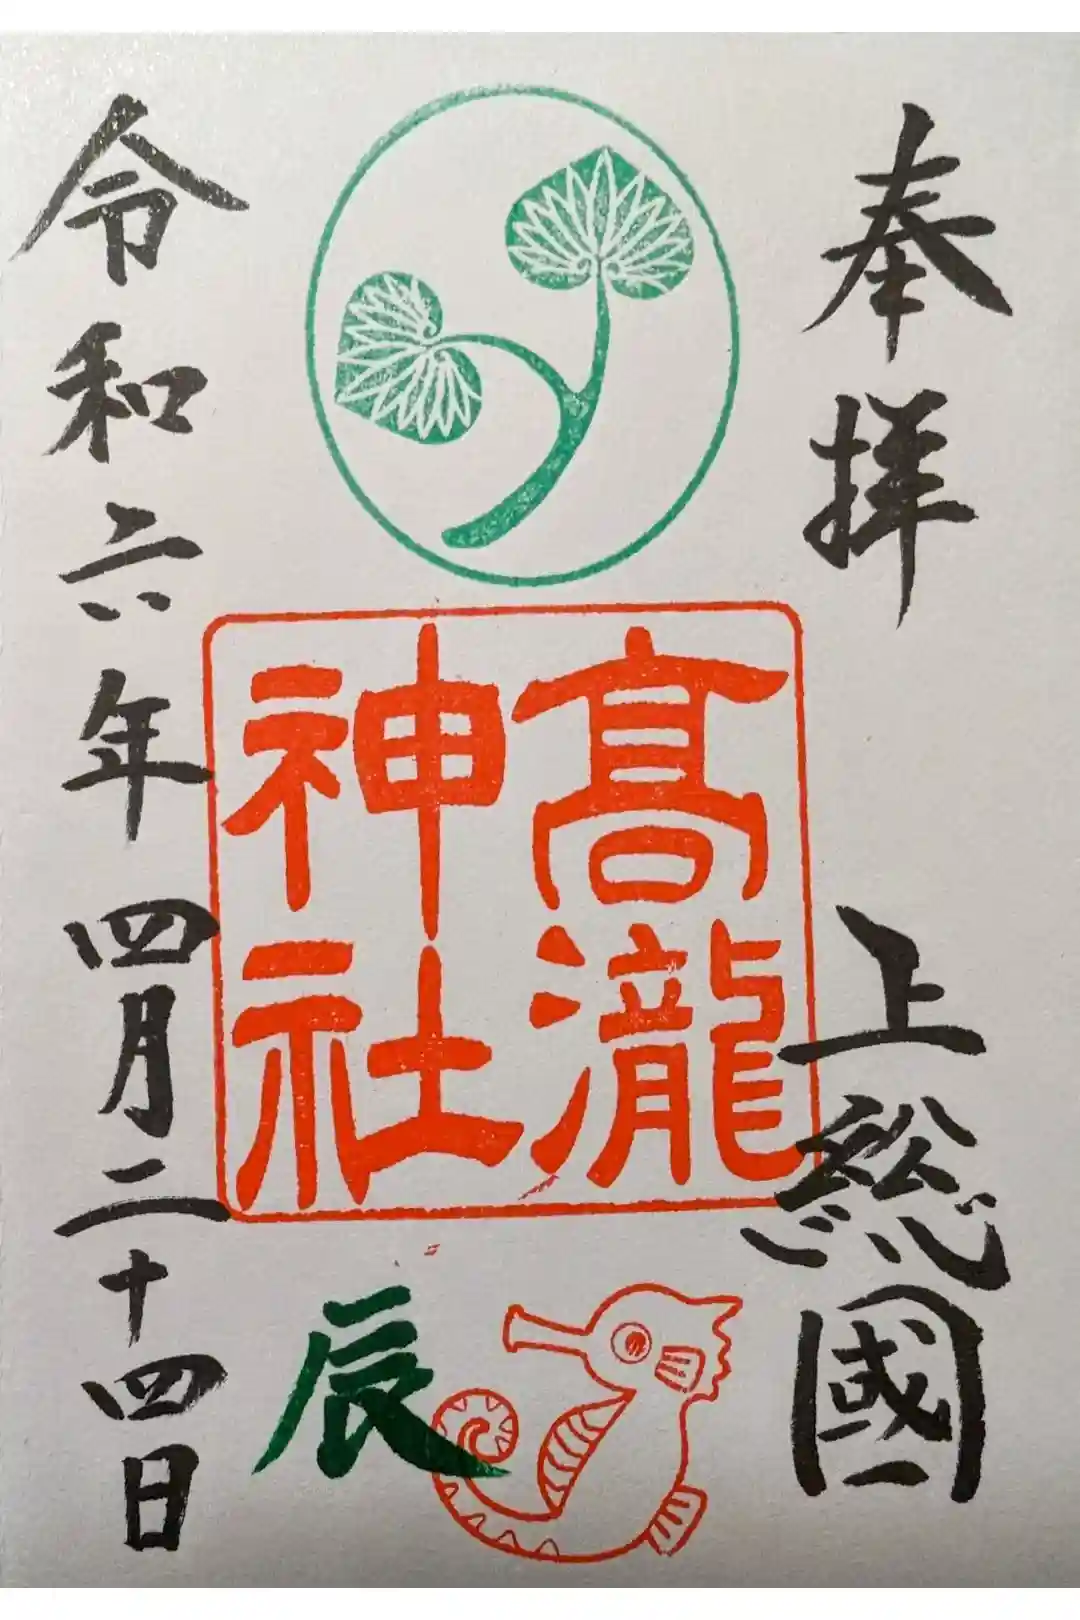 奉拝
上総國
髙瀧
神社
辰
令和六年四月二十四日